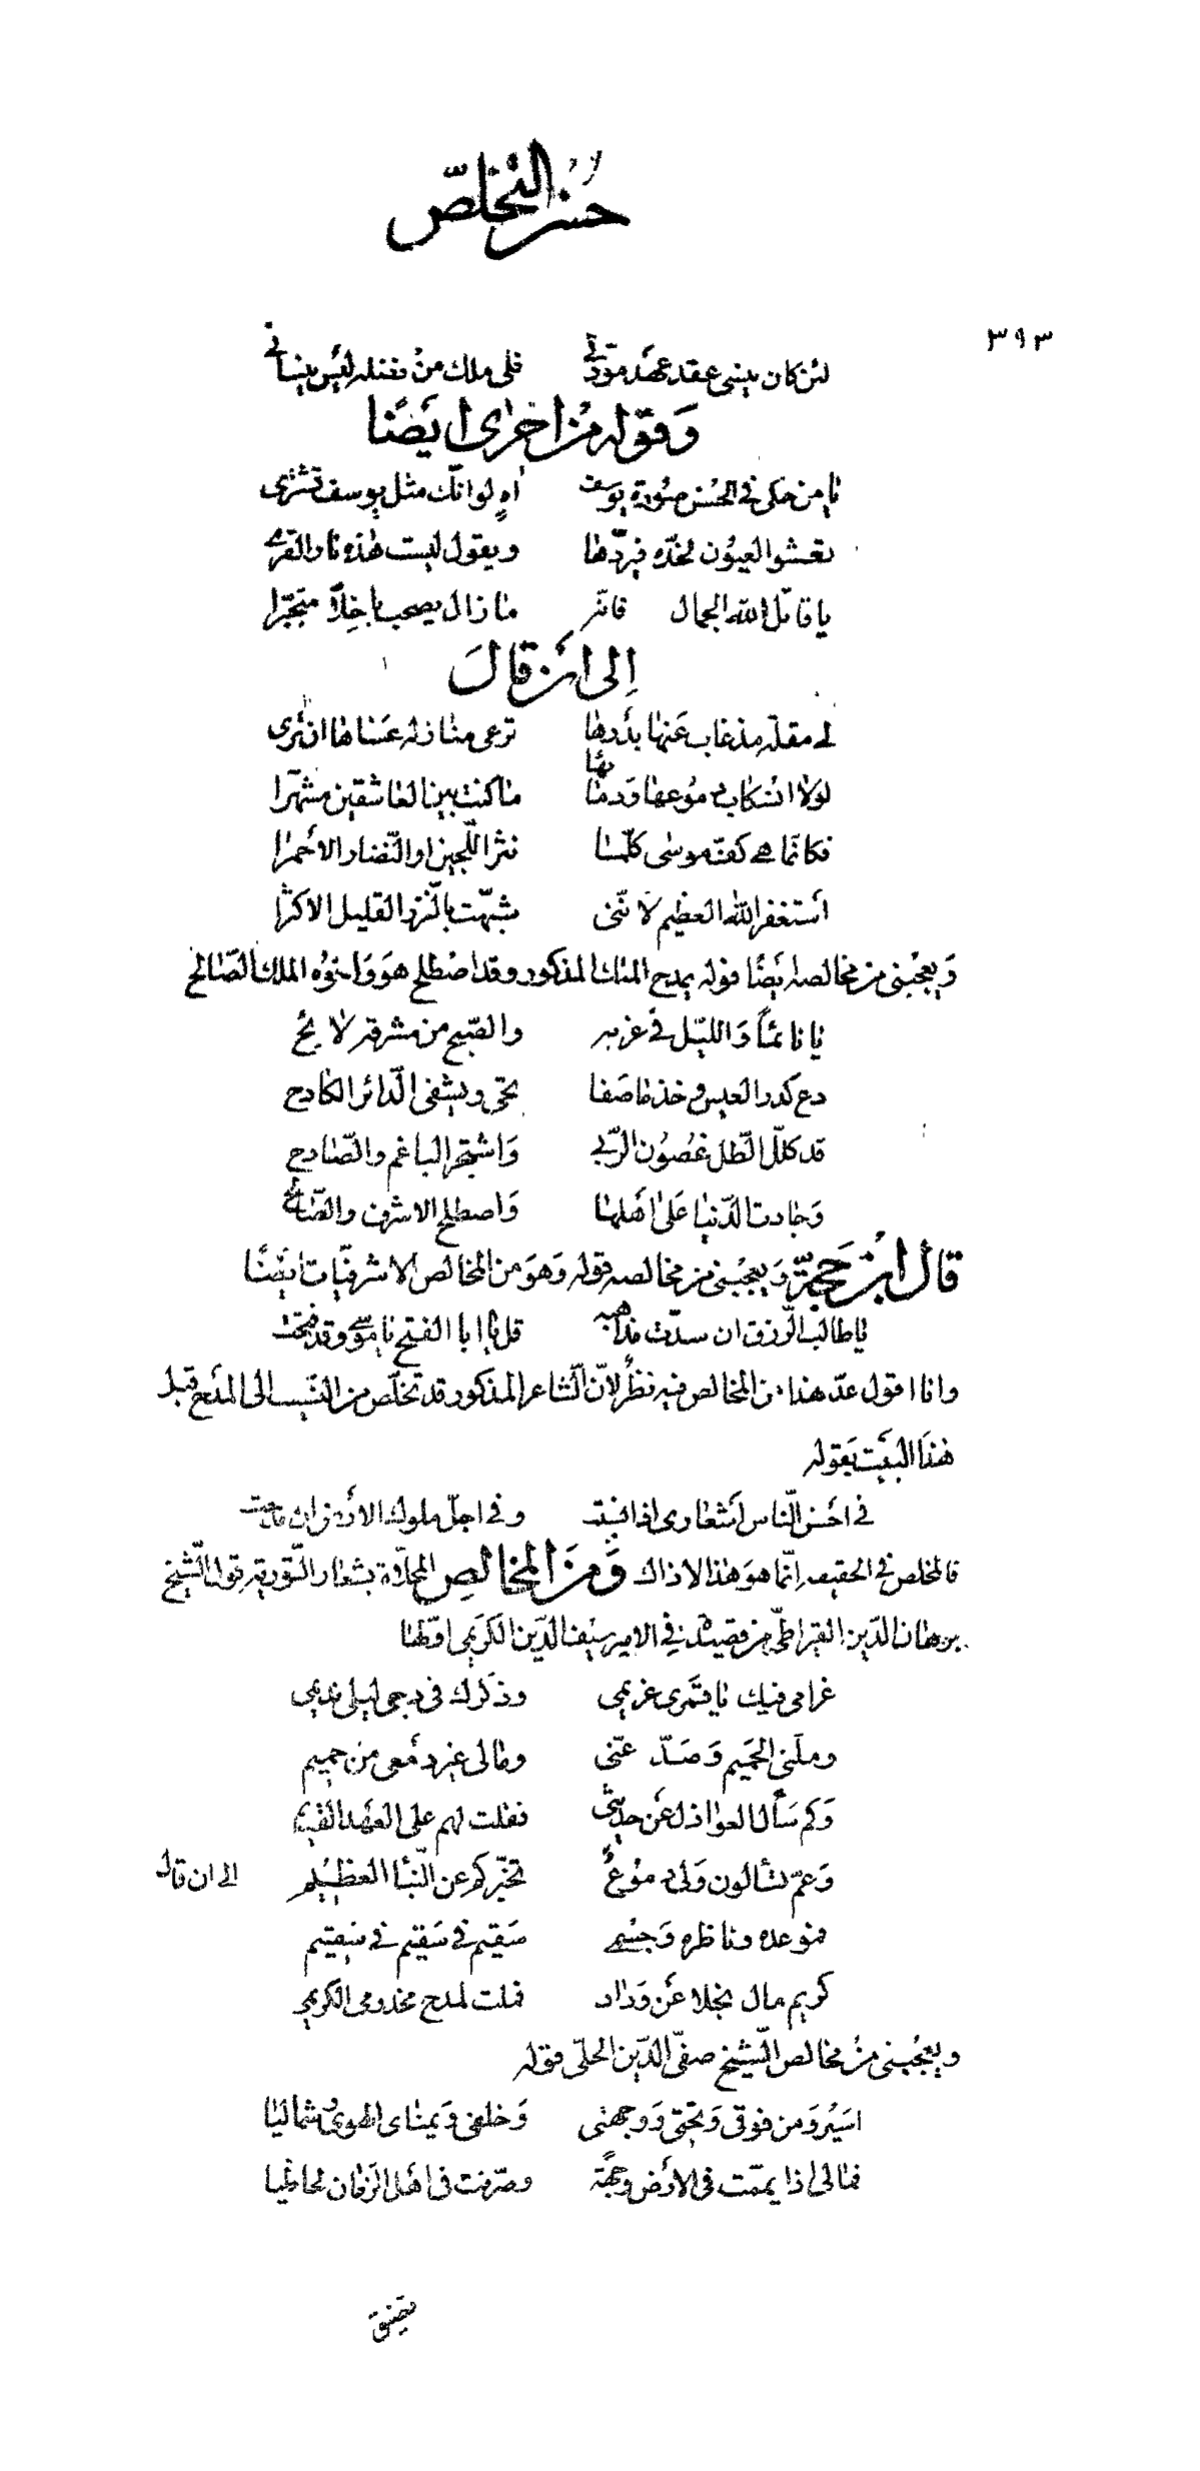 حُسن التخلصّ
٣٩٣
لئن كان ينسى عقد عهد مودّتي فلى ملك من فضله ليس ينساني
وَقوله من اخرى ايضًا
يا من حكى في الحسن صورة يوسف اهٍ لو انّك مثل يوسف تشترى
تعشو العيون لخدّه فيردّها ويقول ليست هذه نار القرى
يا قاتل الله الجمال فانّه ما زال يصحب باخلًا متجبّرا
إلى ان قالَ
لي مقلة مذ غاب عنها بدرها ترعى منازله عساها ان ترى
لولا انسكاب دموعها ودمائها ما كنت بين العاشقين مشهّرا
فكانّما هي كفّ موسى كلّما نثر اللّجين او النّضار الأحمرا
أستغفر الله العظيم لانّنى شبّهت بالنّزر القليل الاكثرا
وَيعجبنى من مخالصه ايضًا قوله يمدح الملك المذكور وقد اصطلح هوَ وَاخوه الملك الصّالح
يا نائمًا وَالليّل في غربه والصّبح من مشرقه لائح
دع كدر العيس وخذ ما صَفا تحتى ويشفى الدّائر الكادح
قد كلّل الطّل غصُون الرّبى وَاشتجر الباغم والصّادح
وَجادت الدّنيا عَلى اَهلها وَاصطلح الاشرف والصّالح
قال ابن حَجّة وَيعجبنى من مخالصه قوله وَهوَ من المخالص الاشرفيّات ايضًا
يا طالب الرّزق ان سدّت مذاهبه قل يا ابا الفتح يا موسى وقد فتحت
وانا اقول عدّ هذا من المخالص فيه نظر لانّ الشّاعر المذكور قد تخلّص من النّسيب الى المدح قبل
هذا البيت بقوله
في احسن النّاس اشعارى اذا نسبت وفى اجلّ ملوك الارض ان مدحت
فالمخلص في الحقيقه انّما هوَ هذا لا ذاك وَمن المخالصِ المحلاّة بشعار التّورية قول الشّيخ
برهان الدّين القيراطى من قصيدة في الامير سيف الدّين الكريمى اوّلها
غرامى فيك يا قمرى غريمى وذكرك فى دجى ليلى نديمى
وملّنى الحميم وَصَدّ عنّى ومالى غير دمعى من حميم
وَكم سَأل العواذل عن حديثى فقلت لهم على العهد القديم
وَعمّ تسألون وَلى دموع تخبّركم عن النّبأ العظيم الى ان قال
فموعده وناظره وَجسْمى سَقيم في سَقيم في سَقيم
كريم مال بخلا عن وَداد فملت لمدح مخدومى الكريمى
ويعجبنى من مخالص الشّيخ صفىّ الدّين الحلّى قوله
اسَيرُ وَمن فوقى وَتحتى وَوجهتى وَخلفى وَيمناى الهوى وشماليا
فمالى اذا يممّت في الارض وجهة وصرّفت فى اهل الزمان لحاظيا